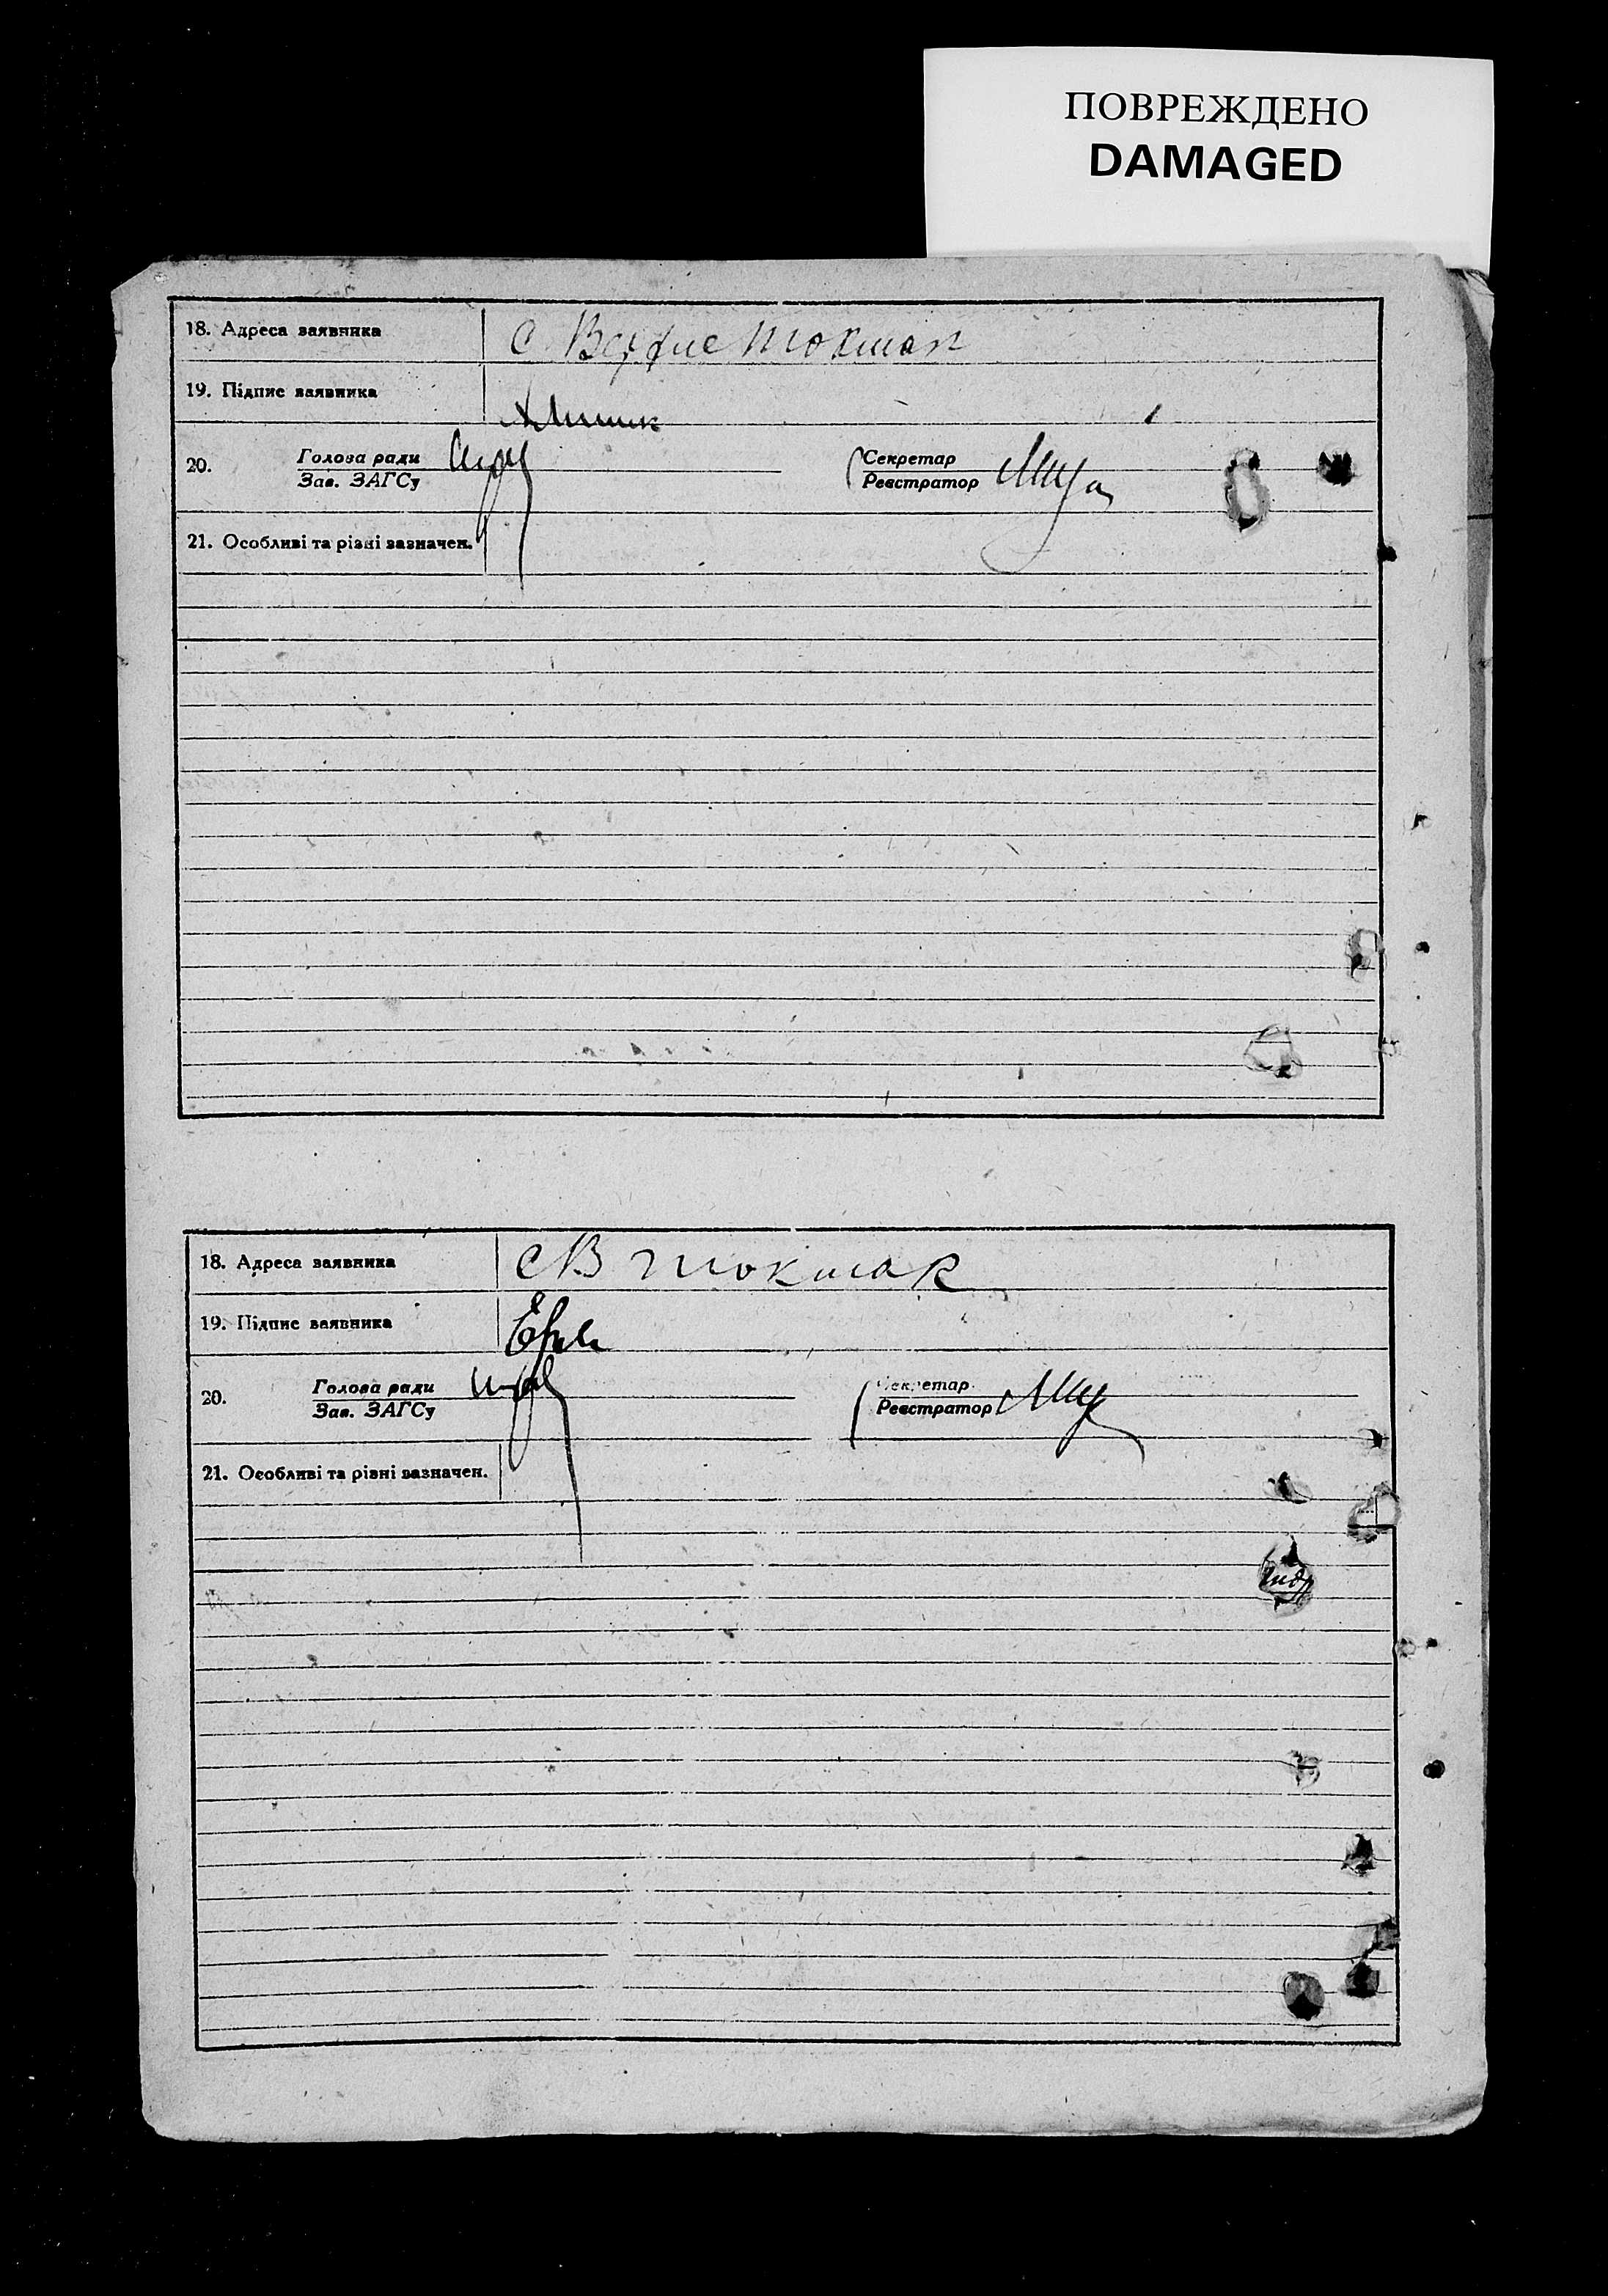 ПОВРЕЖДЕНО
DAMAGED
18. Адреса заявника
с. Верхне Токмак
19. Підпис заявника
20. Голова ради
Зав. ЗАГСу
Секретар
Реєстратор
21. Особливі та різні зазначен.
18. Адреса заявника
с В Токмак
19. Підпис заявника
20. Голова ради
Зав. ЗАГСу
Секретар
Реєстратор
21. Особливі та різні зазначен.